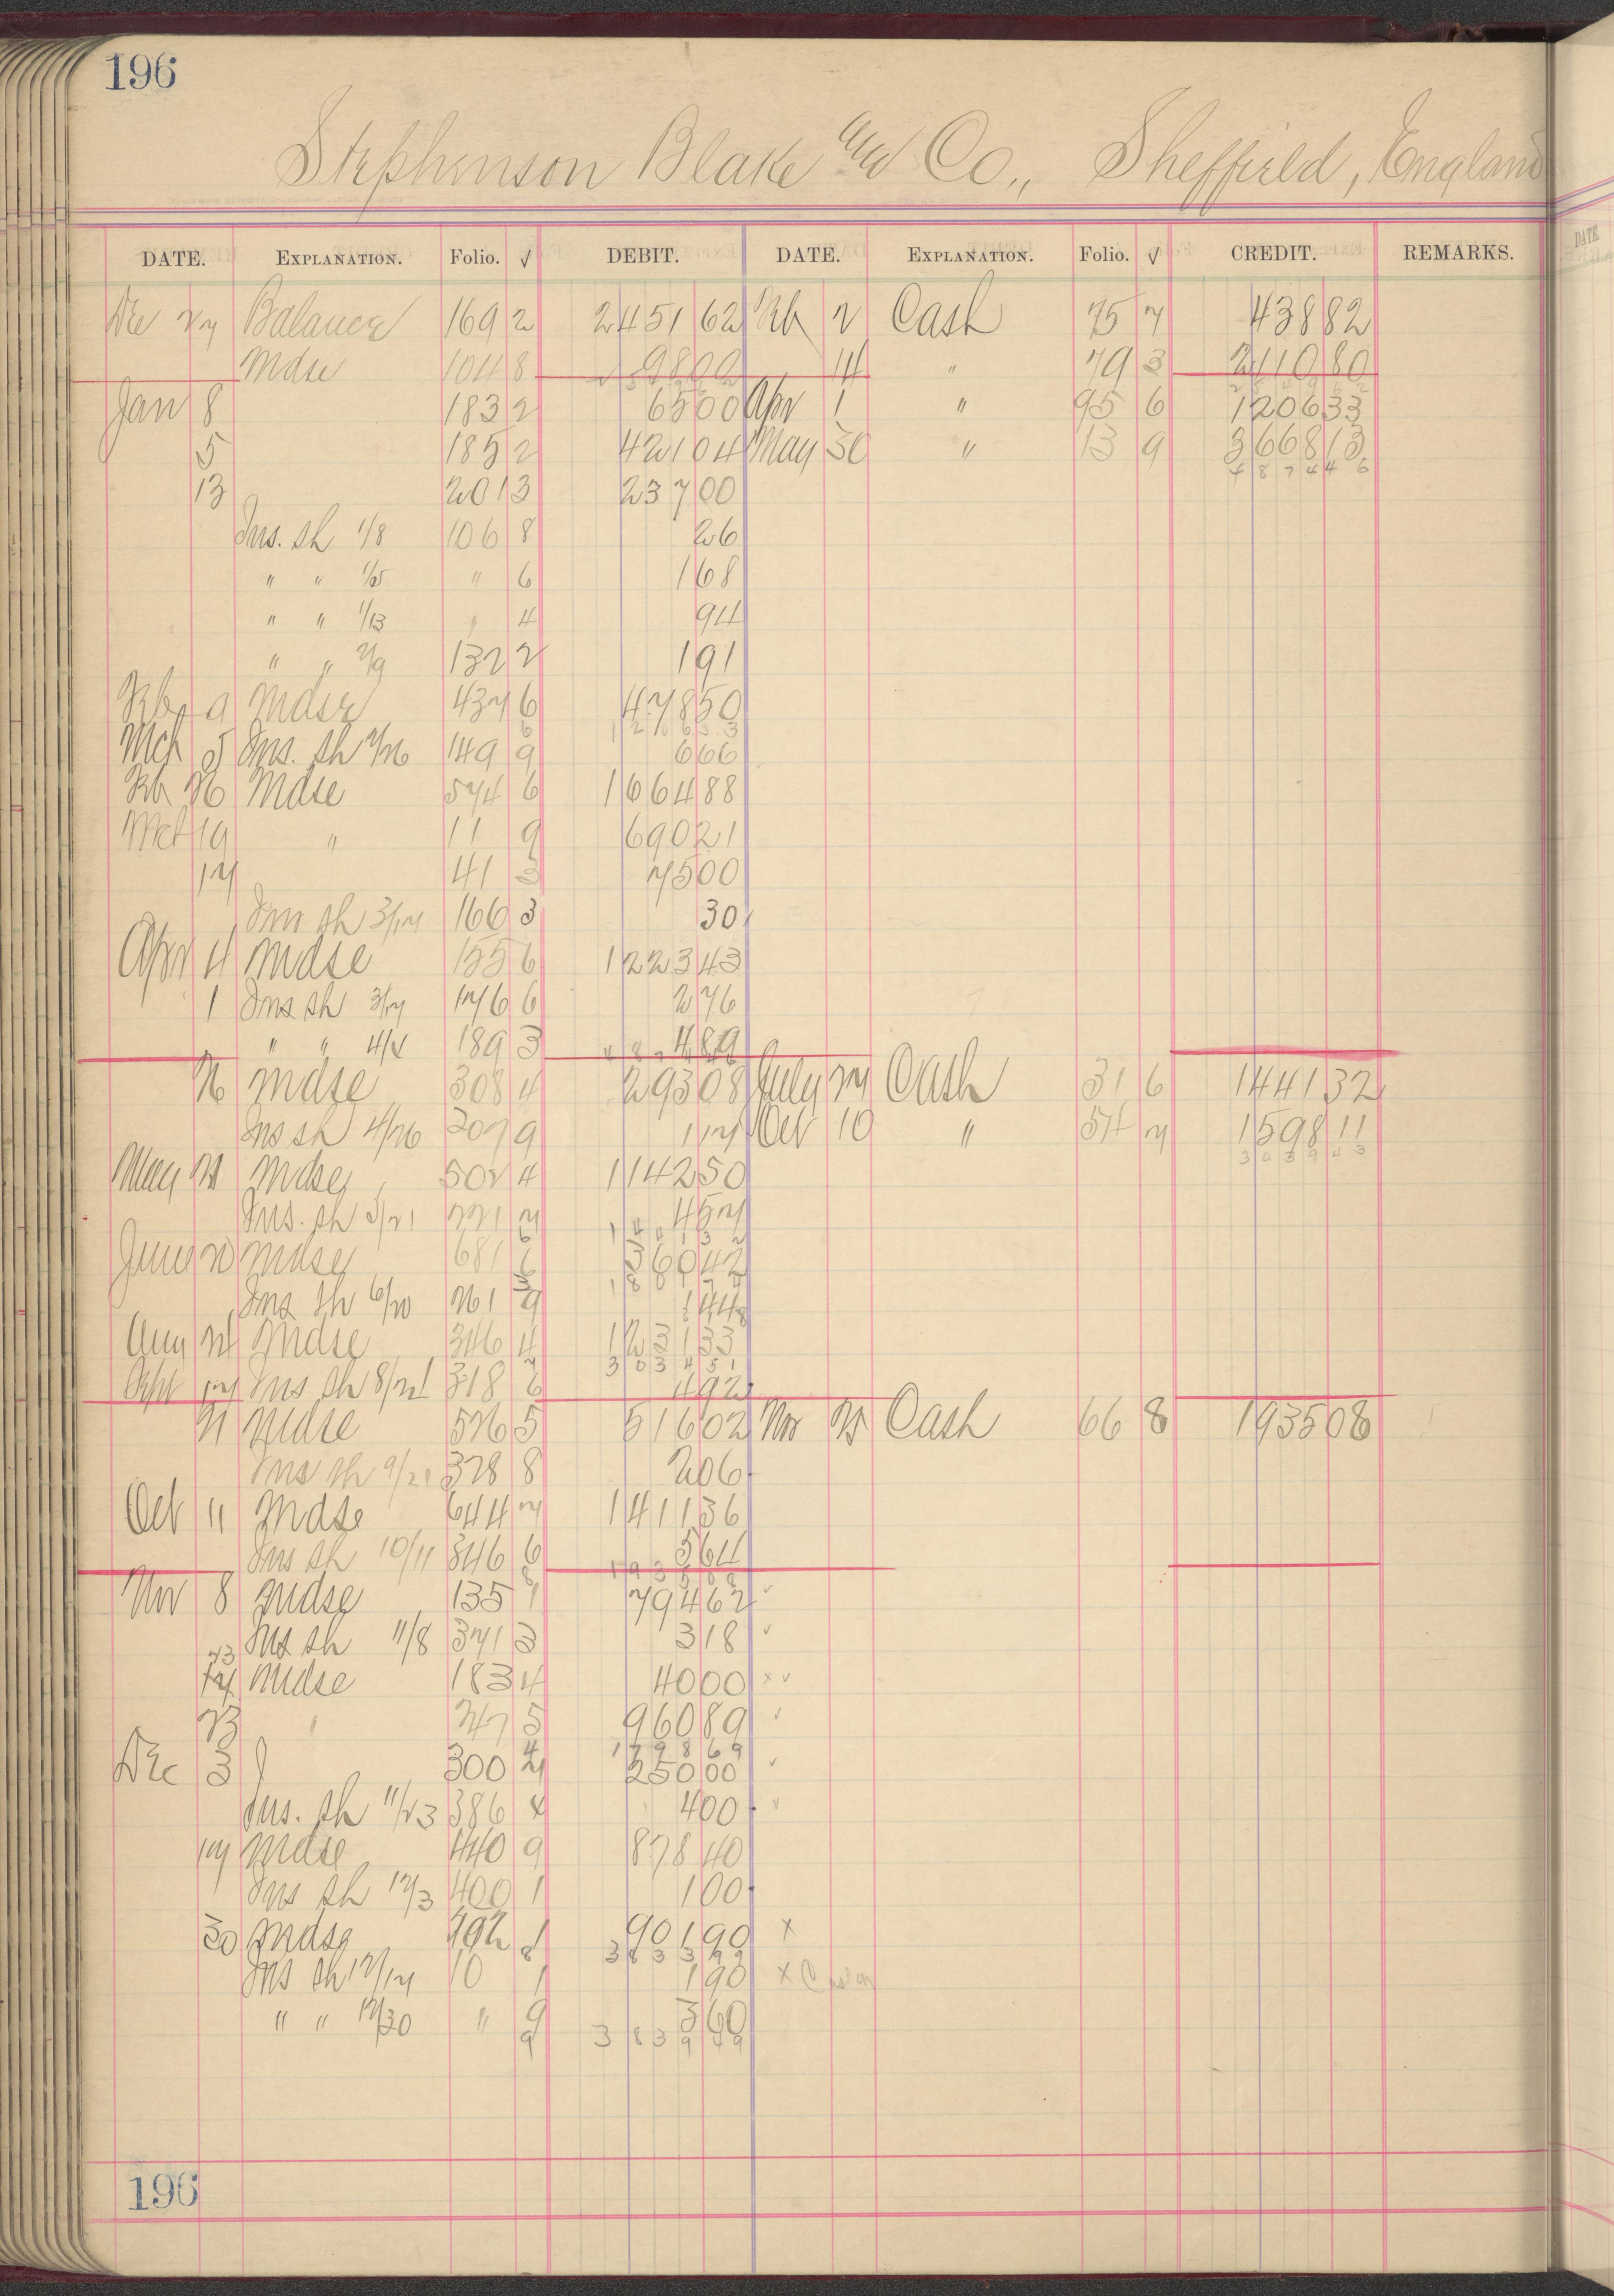 196
Stephenson Blake and Co., Sheffield, England
DATE. EXPLANATION. Folio. √ DEBIT. DATE. EXPLANATION. Folio. √ CREDIT. REMARKS.
Dec 27 Balance 169 2 2451 62 Feb 2 Cash 75 7 438 82
Mdse 104 8 98 00 14 " 79 3 2110 80
Jan 8 183 2 65 00 Apr 1 " 95 6 1206 33
5 185 2 421 04 May 30 " 13 9 3668 13
4 8 7 4 4 6
13 201 3 237 00
Ins. sh 1/8 106 8 26
" " 1/5 " 6 1 68
" " 1/13 " 4 94
" " 2/9 132 2 1 91
Feb 9 Mdse 437 6 478 50
Mch 5 Ins. sh 2/26 149 9 6 66
Feb 26 Mdse 574 6 1664 88
Mch 19 " 11 9 690 21
17 41 3 75 00
Ins sh 3/17 166 3 30
Apr 4 Mdse 155 6 1223 43
1 Ins sh 3/17 176 6 2 76
" " 4/4 189 3 4 89
26 Mdse 308 4 293 08 July 27 Cash 31 6 1441 32
Ins sh 4/26 207 9 1 17 Oct 10 " 54 7 1598 11
3 0 3 9 4 3
May 21 Mdse 502 4 1142 50
Ins. sh 5/21 221 7 4 57
June 20 Mdse 681 6 360 42
Ins sh 6/20 261 9 1 44
Aug 24 Mdse 346 4 1231 33
3 0 3 4 5 1
Sept 17 Ins sh 8/24 318 6 4 92
21 Mdse 526 5 516 02 Nov 25 Cash 66 8 1935 08
Ins sh 9/21 328 8 2 06
Oct 11 Mdse 644 7 1411 36
Ins sh 10/11 346 6 5 64
1 9 3 5 0 8
Nov 8 Mdse 135 1 794 62 √
Ins sh 11/8 371 3 3 18 √
23
Mdse 183 4 40 00 × √
23 " 247 5 960 89 √
1 7 9 8 6 9
Dec 3 " 300 250 00 √
Ins. sh 11/23 386 4 4 00 √
17 Mdse 440 9 878 40
Ins sh 12/3 400 1 1 00
30 Mdse 492 1 901 90 ×
3 8 3 3 9 9
Ins sh 12/17 10 1 1 90 ×
" " 12/30 " 9 3 60
9 3 8 3 9 4 9
196